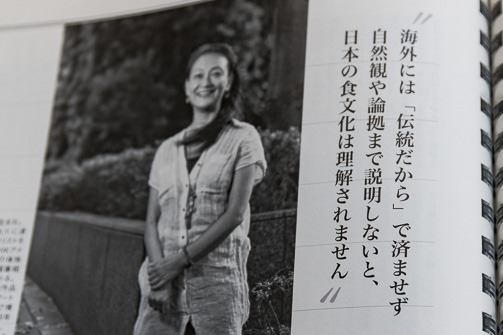 海外には「伝統だから」で済ませず
自然観や論拠まで説明しないと、
日本の食文化は理解されません